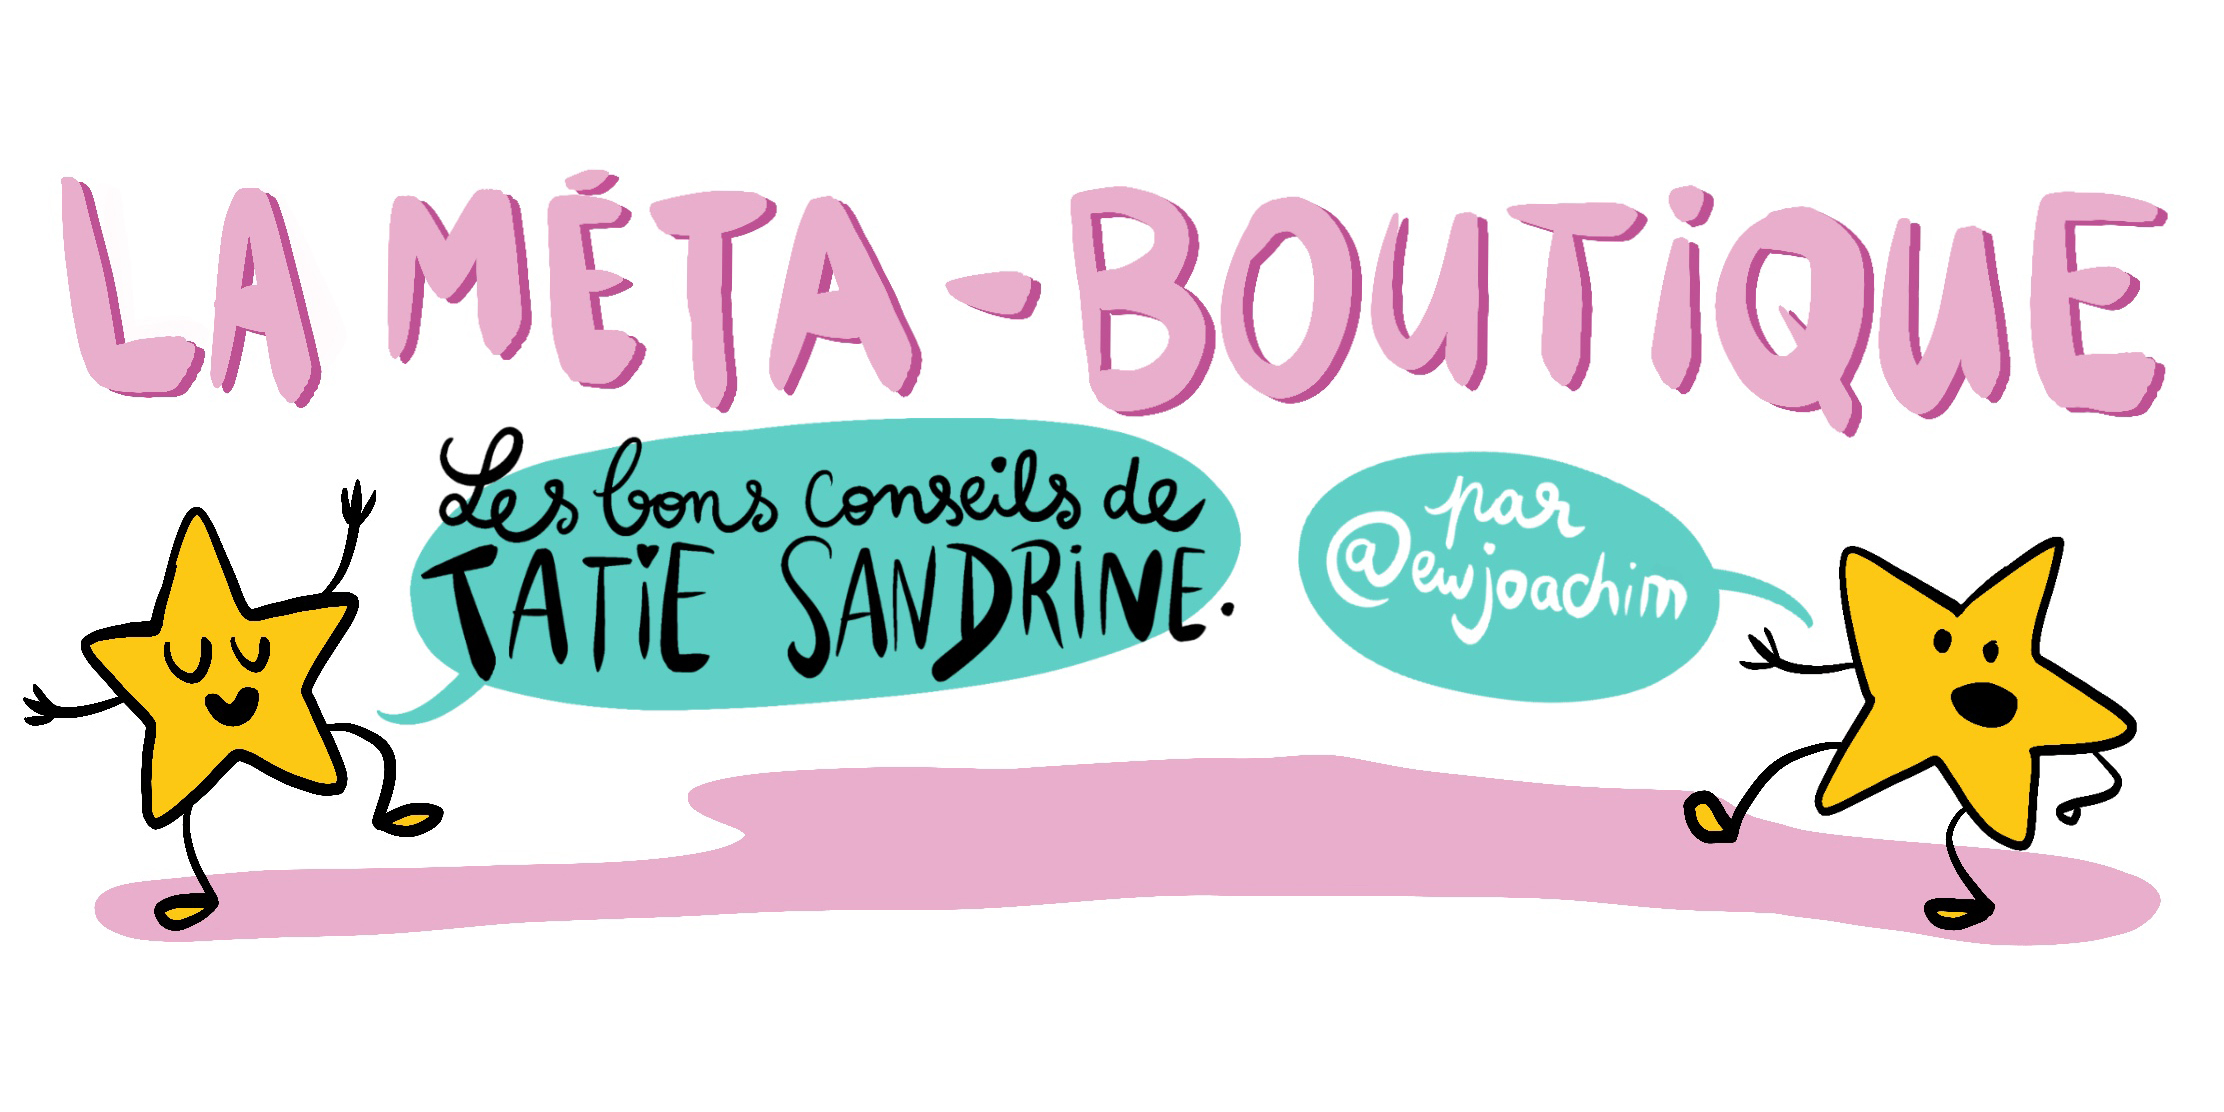 LA MÉTA-BOUTiQUE
Les bons conseils de
TATiE SANDRiNE.
par
@ewjoachim